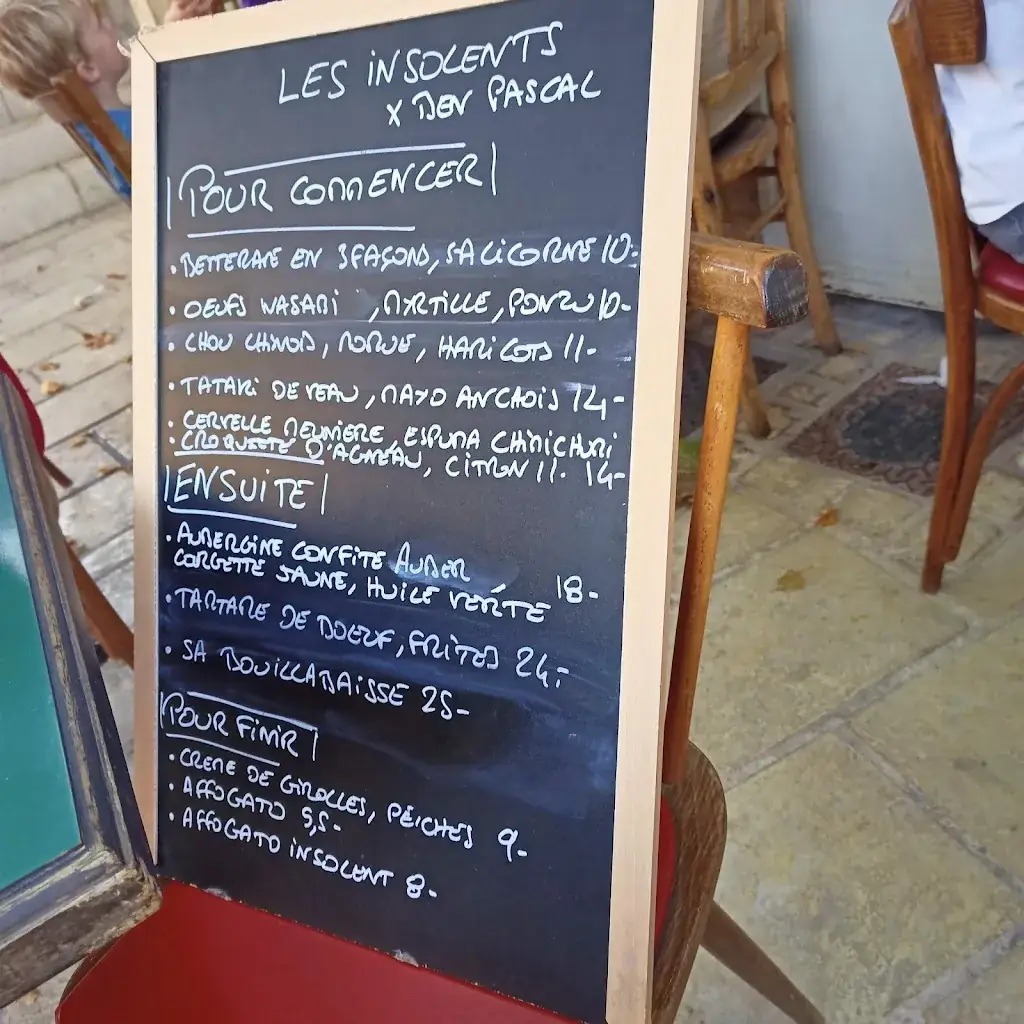 LES INSOLENTS
X BEN PASCAL
POUR COMMENCER
• BETTERAVE EN 3 FAÇONS, SALICORNE 10-
• OEUFS WASABI , MYRTILLE, PONZU 10-
• CHOU CHINOIS, MORUE, HARICOTS 11-
• TATAKI DE VEAU, MAYO ANCHOIS 14-
• CERVELLE MEUNIERE, ESPUMA CHIMICHURI
• CROQUETTE D'AGNEAU, CITRON 11- 14-
ENSUITE
• AUBERGINE CONFITE AUBER
CORGETTE JAUNE, HUILE VERTE 18-
• TARTARE DE BOEUF, FRITES 24-
• SA BOUILLABAISSE 25-
POUR FINIR
• CREME DE GIROLLES, PÉICHES 9-
• AFFOGATO 5,5-
• AFFOGATO INSOLENT 8-